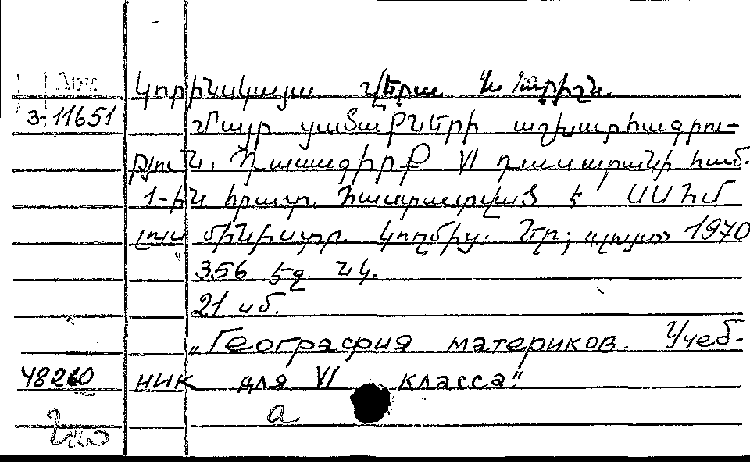 Կորինսկայա Վերա և ուրիշն.
3-11651
Մայր ցամաքների աշխարհագրու-
թյուն. Դասագիրք VI դասարանի համ.
1-ին հրատ. Հաստատված է ՍՍՀՄ
լուս մինիստր. կողմից. Եր; «լույս» 1970
356 էջ նկ.
21 սմ.
„География материков. Учеб-
48260 ник для VI класса"
а